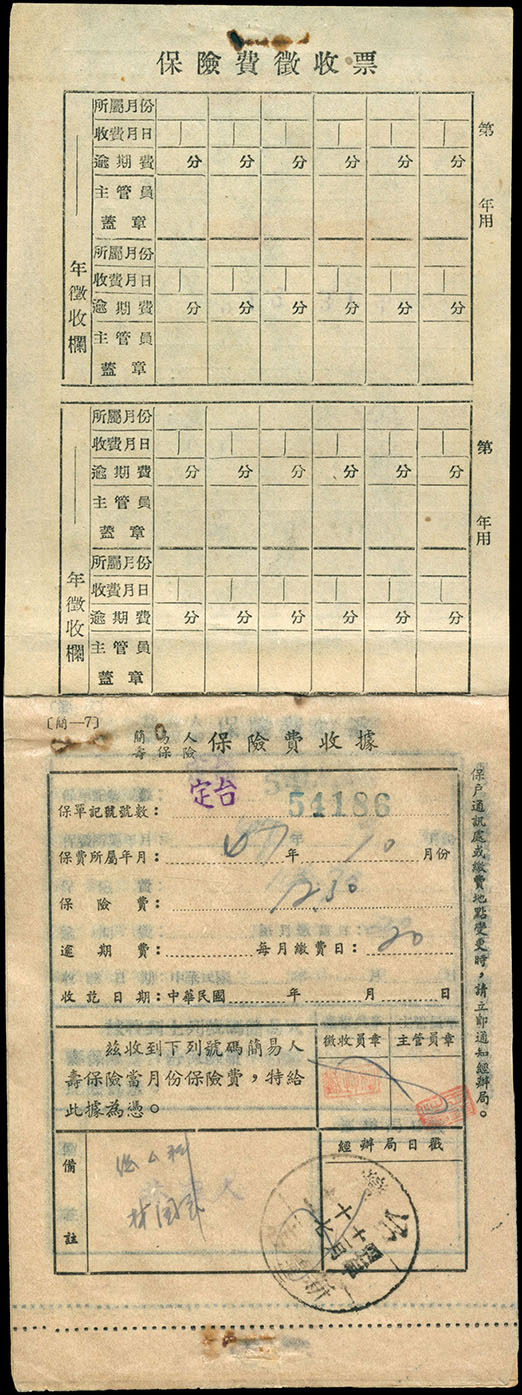 保險費徵收票
第 年用
年徵收欄
所屬月份
收費月日
逾期費 分 分 分 分 分 分
主管員
蓋章
所屬月份
收費月日
逾期費 分 分 分 分 分 分
主管員
蓋章
第 年用
年徵收欄
所屬月份
收費月日
逾期費 分 分 分 分 分 分
主管員
蓋章
所屬月份
收費月日
逾期費 分 分 分 分 分 分
主管員
蓋章
〔簡—7〕
簡易人壽保險 保險費收據
定台
保單記號號數： 54186
保費所屬年月： 年 10 月份
保險費： 12.30
逾期費： 每月繳費日： 20
收訖日期：中華民國 年 月 日
茲收到下列號碼簡易人
壽保險當月份保險費，特給
此據為憑。
徵收員章 主管員章
經辦局日戳
備註
台
保户通訊處或繳費地點變更時，請立即通知經辦局。